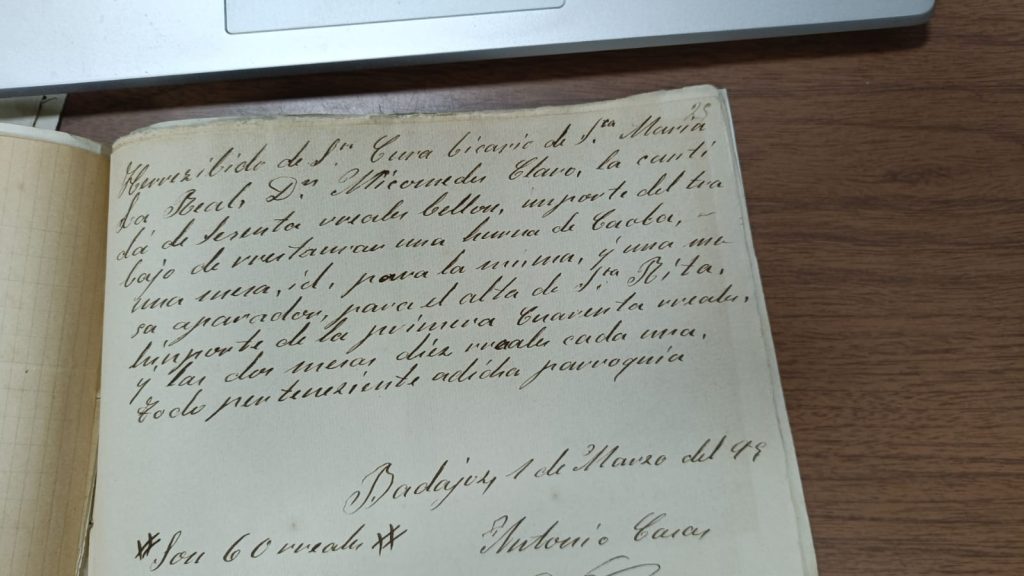 23
Herrezibido de Sr. Cura bicario de Sta. Maria
La Real, Dn. Nicomedes Claro, la canti
dá de sesenta rreales bellon, importe del tra
bajo de rrestaurar una hurna de Caoba,
una mesa, id, para la misma, y una me
sa aparador, para el alta de Sta. Rita,
hinporte de la primera Cuarenta rreales,
y las dos mesas diez rreales cada una,
todo perteneziente adicha parroquia
Badajoz, 1 de Marzo del
Son 60 rreales
Antonio Casas